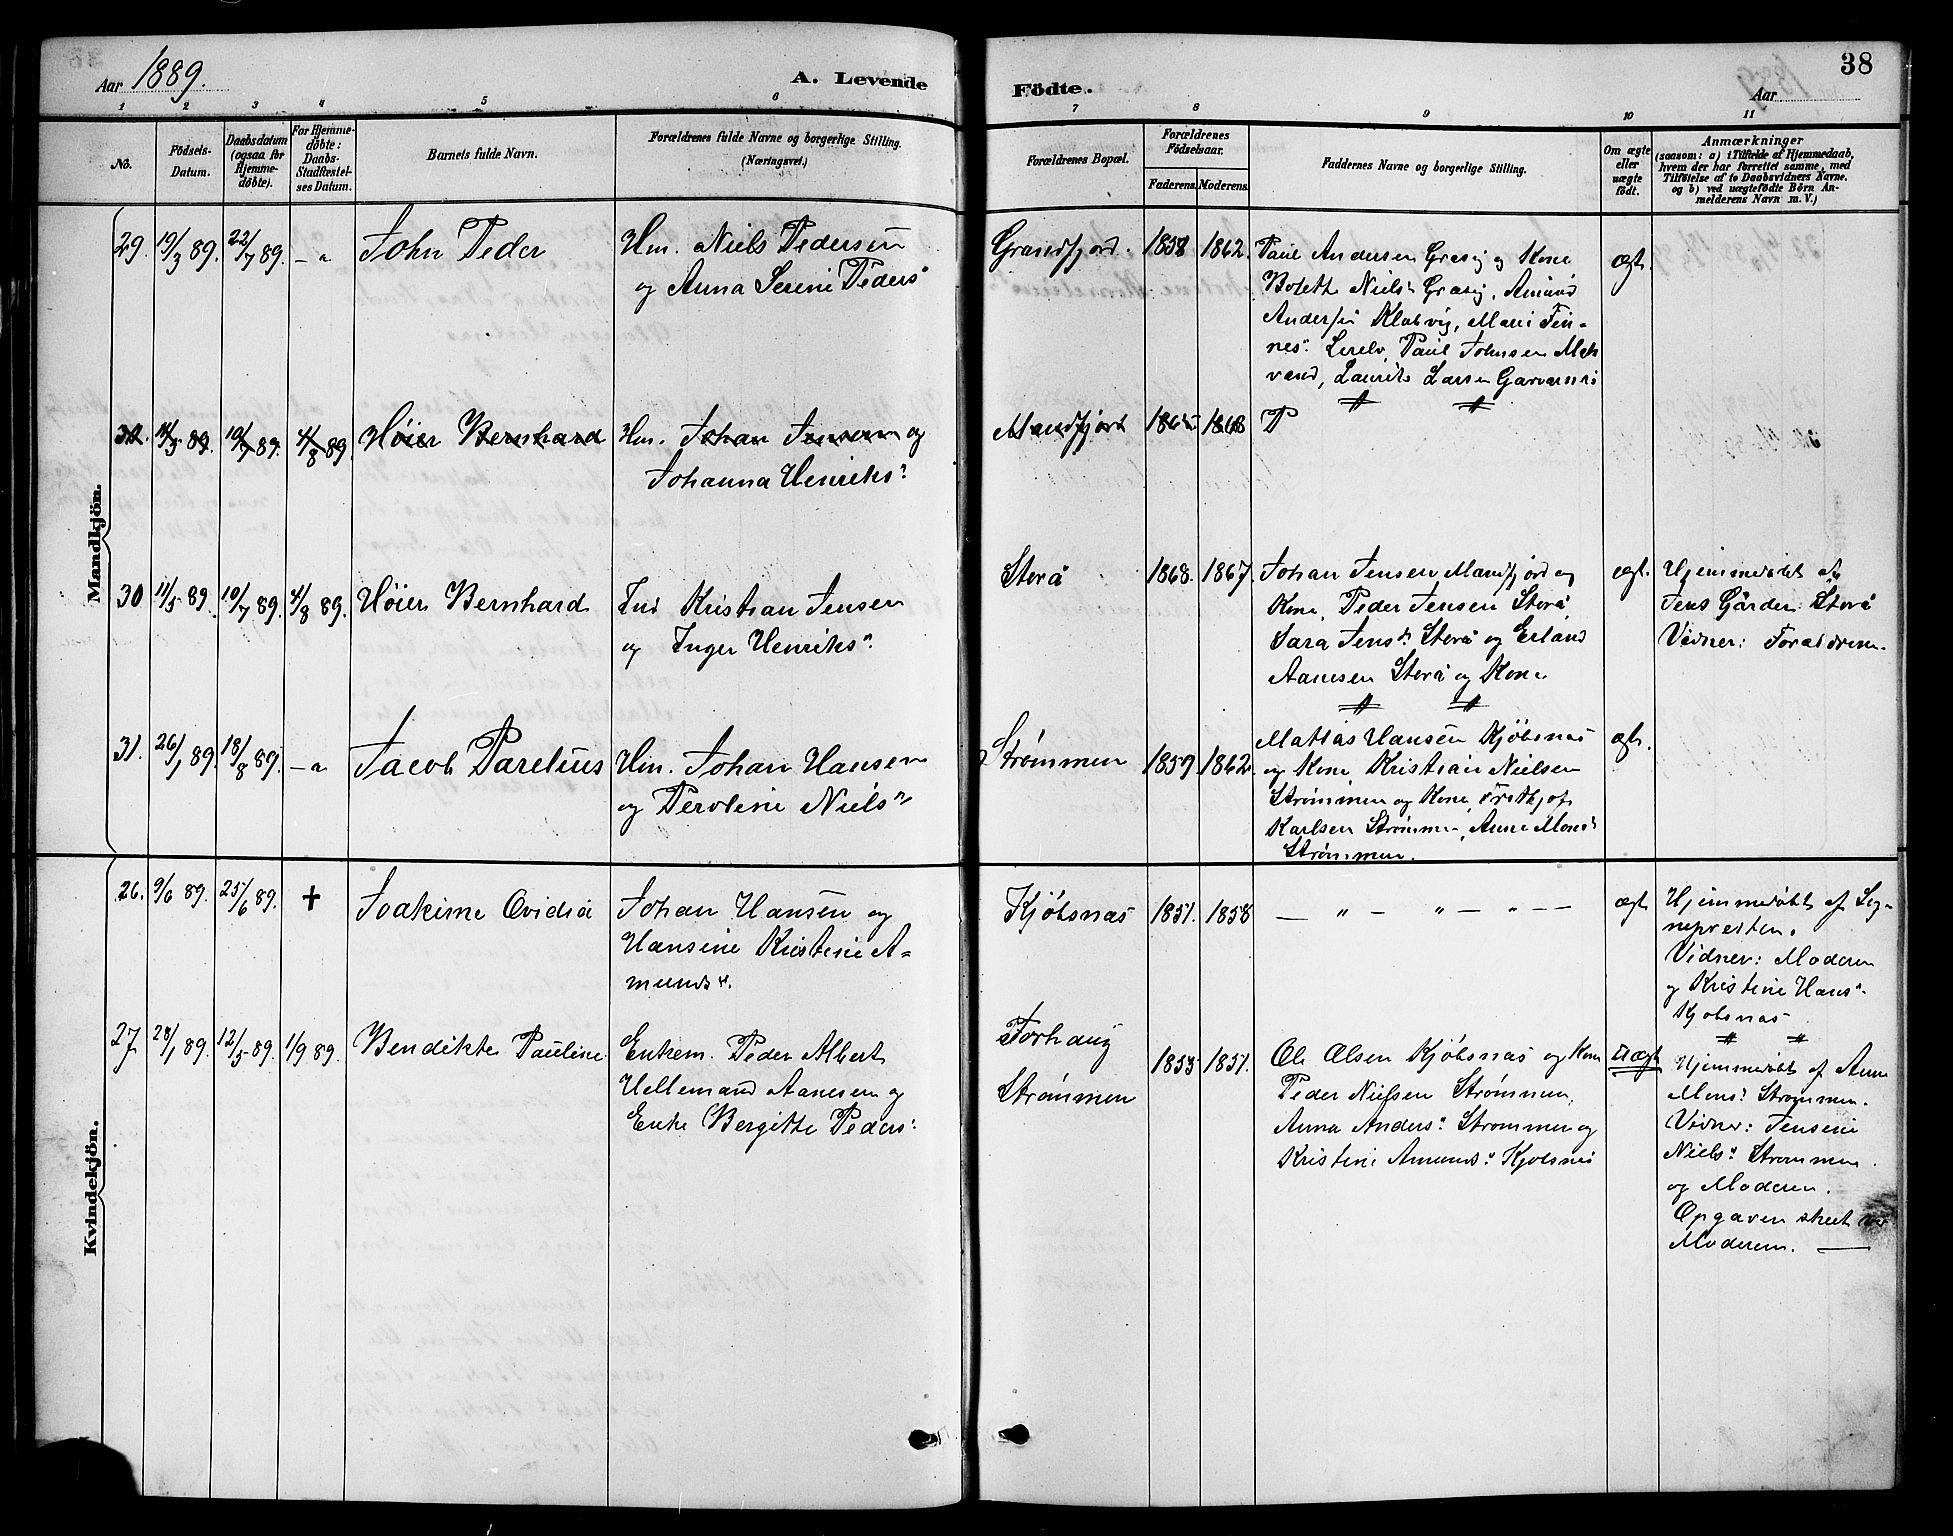 Aar 1889.
A. Levende
Födte.
38
Aar
1 2 3 4 5 6 7 8 9 10 11
No.
Födsels-
Datum.
Daabsdatum
(ogsaa for
Hjemme-
döbte).
For Hjemme-
döbte:
Daabs-
Stadfæstel-
ses Datum.
Barnets fulde Navn.
Forældrenes fulde Navne og borgerlige Stilling.
(Næringsvei.)
Forældrenes Bopæl.
Forældrenes
Födselsaar.
Faderens. Moderens.
Faddernes Navne og borgerlige Stilling.
Om ægte
eller
uægte
födt.
Anmærkninger
(saasom: a) i Tilfælde af Hjemmedaab,
hvem der har forrettet samme, med
Tilföielse af to Daabsvidners Navne.
og b) ved uægtefödte Börn An-
melderens Navn m. V.)
Mandkjön.
29. 19/3 89. 22/7 89. — " John Peder
Hm. Niels Pedersen
og Anna Serine Peders"
Grandfjord. 1858 1862.
Paul Andersen Grasej og Kone
Bolette Niels" Grasej, Amund
Andersen Klubvig, Mari Fin-
nes". Lerelv, Paul Johnsen Mek
vand, Laurits Larsen Garvarnes
ægt.
30. 11/5 89. 10/7 89. 4/8 89. Høier Bernhard
Hm. Johan Jensen og
Johanna Henriks"
Mandfjord 1865 1868 P
30 11/5 89. 10/7 89. 4/8 89. Høier Bernhard
Ind Kristian Jensen
og Inger Henriks".
Storå 1868. 1867.
Johan Jensen, Mandfjord og
Kone, Peder Jensen Storå
Sara Jensd. Storå og Erland
Aanesen Storå og Kone
ægt.
Hjemmedøbt af
Jens Gårder Storå
Vidner: Foraldrene.
31. 26/1 89. 18/8 89. — " Jacob Parelius
Hm. Johan Hansen
og Peroline Niels"
Strømmen 1859 1862.
Mattias Hansen Kjøbsnas
og Kone, Kristian Nielsen
Strømmen og Kone, Fridthjof
Karlsen Strømmen, Anne Mons"
Strømmen.
ægt.
Kvindekjön.
26. 9/6 89. 25/6 89. + Joakime Ovidia
Johan Hansen og
Hansine Kristine A-
munds".
Kjøbsnas 1851. 1858
— " — " — " — —
ægt
Hjemmedøbt af Sog-
nepresten.
Vidner: Moderen
og Kristine Hans"
Kjobsnas
27. 28/1 89. 12/5 89. 1/9 89. Bendikte Pauline
Enkem. Peder Albert
Hellemand Aanesen og
Enke Bergitte Peders"
Forhaug
Strømmen
1853 1851.
Ole Olsen Kjøbsnas og Kone
Peder Nielsen Strømmen,
Anna Anders" Strommen og
Kristine Amunds" Kjobsnes
Uægt
Hjemmedøbt af Anne
Mons" Strommen.
Vidner: Jensine
Niels" Strommen
og Moderen.
Opgaven skeet ved
Moderen. —